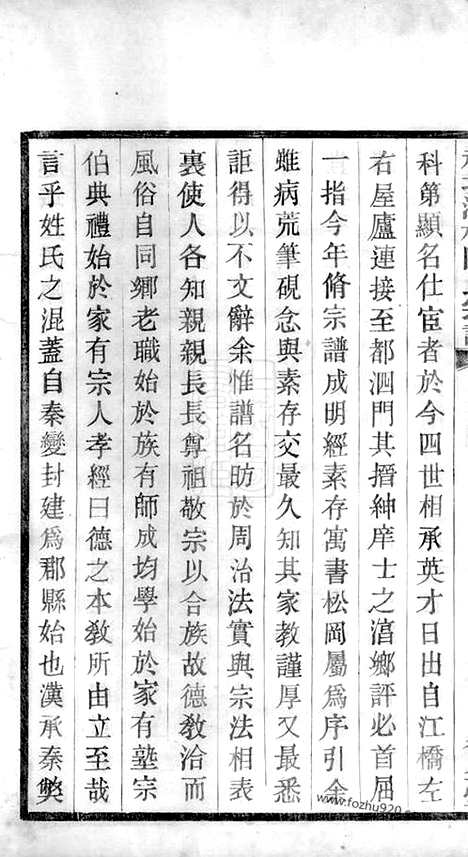 科第顯名仕宦者於今四世相承英才日出自江橋左
右屋廬連接至都泗門其搢紳庠士之㵎鄉評必首屈
一指今年脩宗譜成明經素存寓書松岡屬爲序引余
雖病荒筆硯念與素存交最久知其家敎謹厚又最悉
詎得以不文辭余惟譜名昉於周治法實與宗法相表
裏使人各知親親長長尊祖敬宗以合族故德敎洽而
風俗自同鄉老職始於族有師成均學始於家有塾宗
伯典禮始於家有宗人孝經曰德之本敎所由立至哉
言乎姓氏之混蓋自秦變封建爲郡縣始也漢承秦獘
www.fozhu920.com